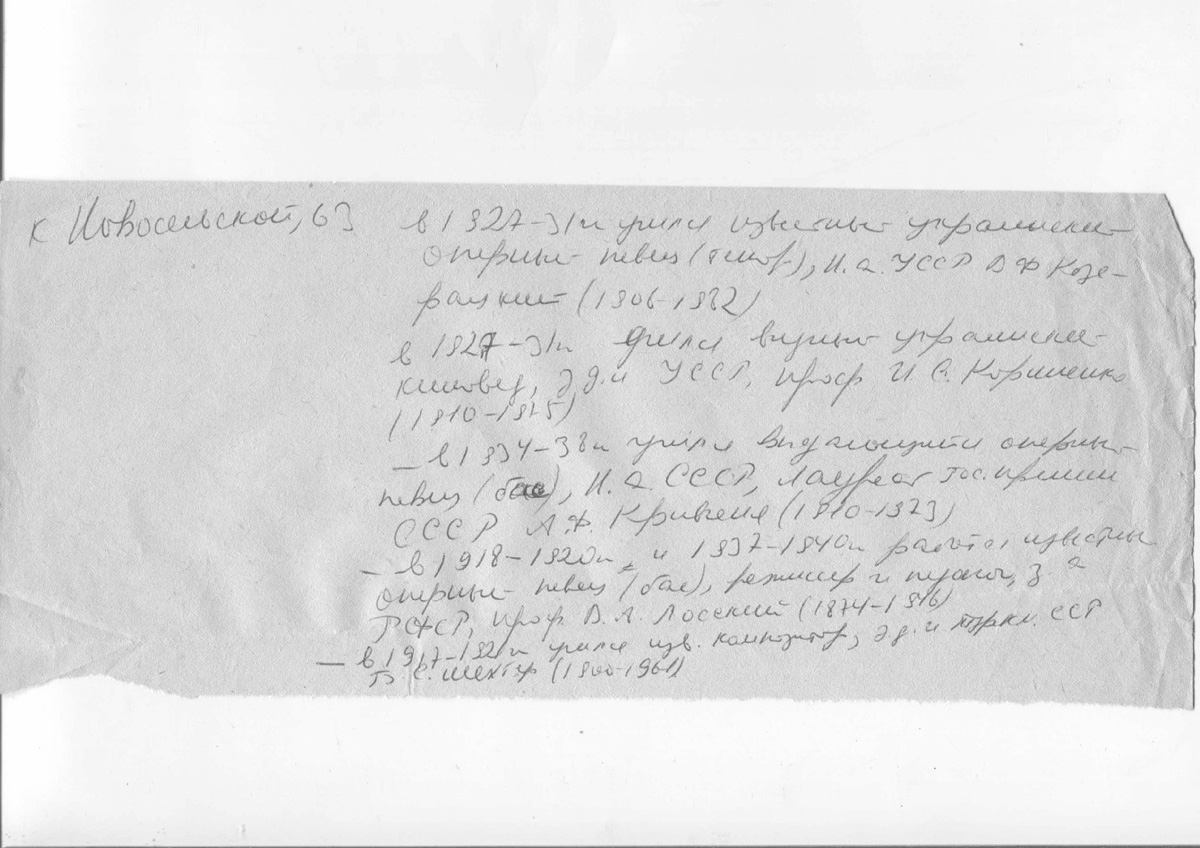 к Новосельской, 63
в 1927-31гг учился известный украинский
оперный певец (тенор), н. а. УССР В Ф Козе-
рацкий (1906-1982)
в 1927-31гг учился видный украинский
киновед, з.д.и УССР, проф И С. Корниенко
(1910-1975)
— в 1934-38гг учился выдающийся оперный
певец (бас), н. а. СССР, лауреат гос. премии
СССР А.Ф. Кривченя (1910-1973)
— в 1918-1920гг и 1937-1940гг работал известный
оперный певец (бас), режиссер и педагог, з. а
РСФСР, проф. В. А. Лосский (1874-1946)
— в 1917-192 гг учился изв. композитор, з д. и Туркм. ССР
Б. С. Шехтер (1900-1961)